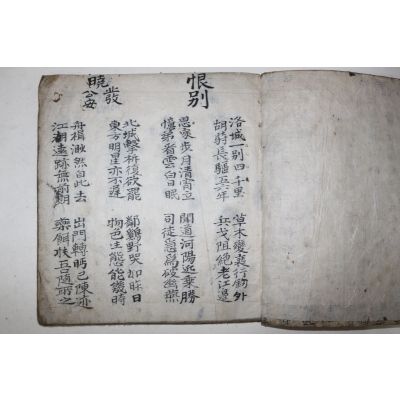 恨別
洛城一別四千里 草木變衰行釰外
胡騎長驅五六年 兵戈阻絕老江邊
思家步月清宵立 聞道河陽近乘勝
憶弟看雲白日眠 司徒急為破幽燕
曉發公安
北城擊柝復欲罷 鄰鷄野哭如昨日
東方明星亦不遲 物色生態能幾時
舟楫渺然自此去 出門轉眄已陳迹
江湖遠跡無前期 藥餌扶吾隨所之